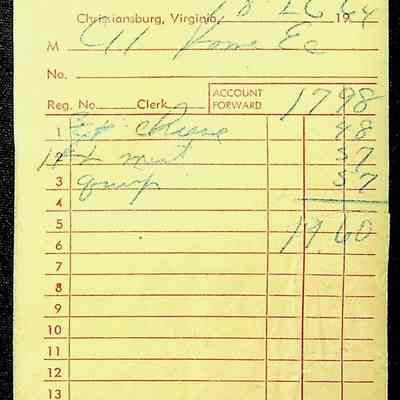 Christiansburg, Virginia, 19 64
M Home Ec
No.
Reg. No. Clerk ACCOUNT FORWARD 17 98
1 cheese 48
2 meat 57
3 57
4
5 19.60
6
7
8
9
10
11
12
13